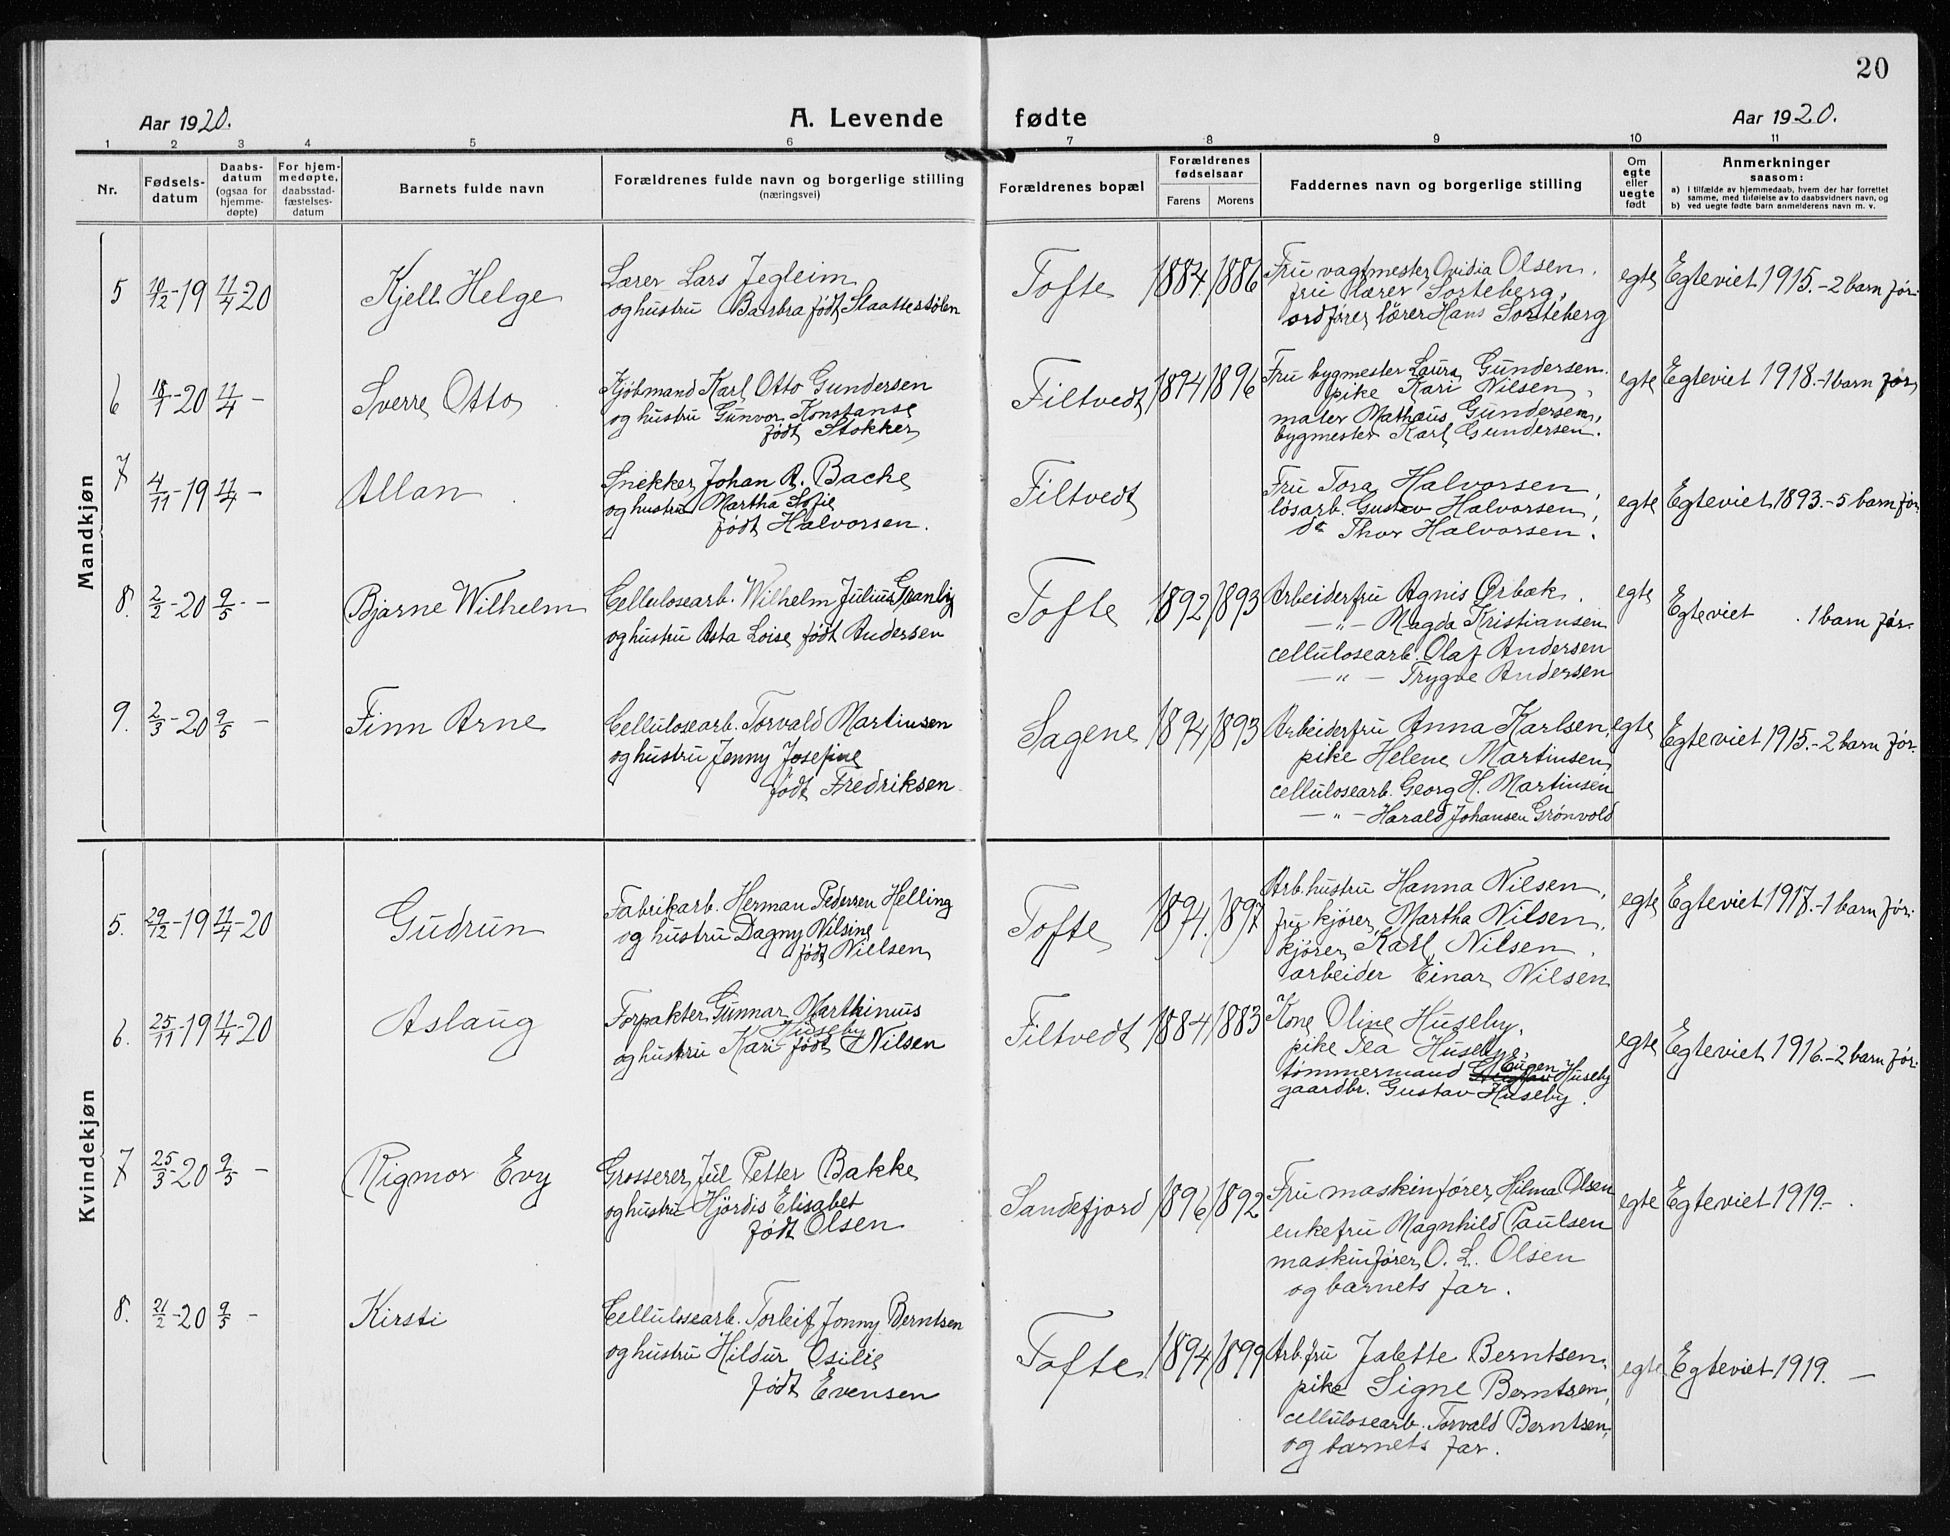 20
Aar 1920.
A. Levende fødte
Aar 1920.
1 2 3 4 5 6 7 8 9 10 11
Nr.
Fødsels-
datum
Daabs-
datum
(ogsaa for
hjemme-
døpte)
For hjem-
medøpte,
daabsstad-
fæstelses-
datum
Barnets fulde navn
Forældrenes fulde navn og borgerlige stilling
(næringsvei)
Forældrenes bopæl
Forældrenes
fødselsaar
Farens Morens
Faddernes navn og borgerlige stilling
Om
egte
eller
uegte
født
Anmerkninger
saasom:
a) i tilfælde av hjemmedaab, hvem der har forrettet
samme, med tilføielse av to daabsvidners navn, og
b) ved uegte fødte barn anmelderens navn m. v.
Mandkjøn
5 10/12-19 11/4-20
Kjell Helge
Lærer Lars Jegleim
og hustru Barbra født Slaattestølen
Tofte
1884. 1886
Fru vagtmester Ovidia Olsen.
fru lærer Sorteberg,
ordfører lærer Hans Sorteberg
egte
Egteviet 1915.-2 barn før.
6 18/1-20 11/4 -
Sverre Otto
Kjøbmand Karl Otto Gundersen
og hustru Gunvor Konstanse
født Stokker
Filtvedt
1894 1896
Fru bygmester Laura Gundersen.
pike Kari Nilsen,
maler Mathæus Gundersen,
bygmester Karl Gundersen.
egte
Egteviet 1918.-1 barn før
7 4/11-19 11/4 -
Allan
Snekker Johan A. Backe
og hustru Martha Sofie
født Halvorsen.
Filtvedt
Fru Tora Halvorsen,
løsarb. Gustav Halvorsen,
do Thor Halvorsen.
egte
Egteviet 1893.-5 barn før.
8. 2/2-20 9/5 -
Bjarne Wilhelm
Cellulosearb. Wilhelm Julius Granly
og hustru Asta Loise født Andersen
Tofte
1892 1893
Arbeiderfru Agnis Ørbæk.
-"- Magda Kristiansen
cellulosearb. Olaf Andersen
-"- Trygve Andersen
egte
Egteviet . 1 barn før.
9. 2/3-20 9/5 -
Finn Arne
Cellulosearb. Torvald Martinsen
og hustru Jenny Josefine
født Fredriksen
Sagene
1894 1893
Arbeiderfru Anna Karlsen,
pike Helene Martinsen,
cellulosearb. Georg H. Martinsen
-"- Harald Johansen Grønvold
egte
Egteviet 1915.-2 barn før.
Kvindekjøn
5. 29/12-19 11/4-20
Gudrun
Fabrikarb. Herman Pedersen Helling
og hustru Dagny Nilsine
født Nielsen
Tofte
1894. 1897
Arb.hustru Hanna Nilsen,
fru kjører Martha Nilsen,
kjører Karl Nilsen,
arbeider Einar Nilsen
egte
Egteviet 1917.-1 barn før.
6. 25/11-19 11/4-20
Aslaug
Forpakter Gunnar Marthinius
Huseby
og hustru Kari født Nilsen
Filtvedt
1884 1883
Kone Oline Huseby,
pike Tea Huseby,
tømmermand Eugen Huseby
gaardbr. Gustav Huseby.
egte
Egteviet 1916.-2 barn før.
7 25/3-20 9/5 -
Rigmor Evy
Grosserer Jul Petter Bakke
og hustru Hjørdis Elisabet
født Olsen
Sandefjord
1896 1892
Fru maskinfører Hilma Olsen
enkefru Magnhild Paulsen
maskinfører O. L. Olsen
og barnets far.
egte
Egteviet 1919.- .
8. 21/2-20 9/5 -
Kirsti
Cellulosearb. Torleif Jonny Berntsen
og hustru Hildur Osilie
født Evensen
Tofte
1894 1899
Arb.fru Jalette Berntsen,
pike Signe Berntsen,
cellulosearb. Torvald Berntsen,
og barnets far.
egte
Egteviet 1919. -